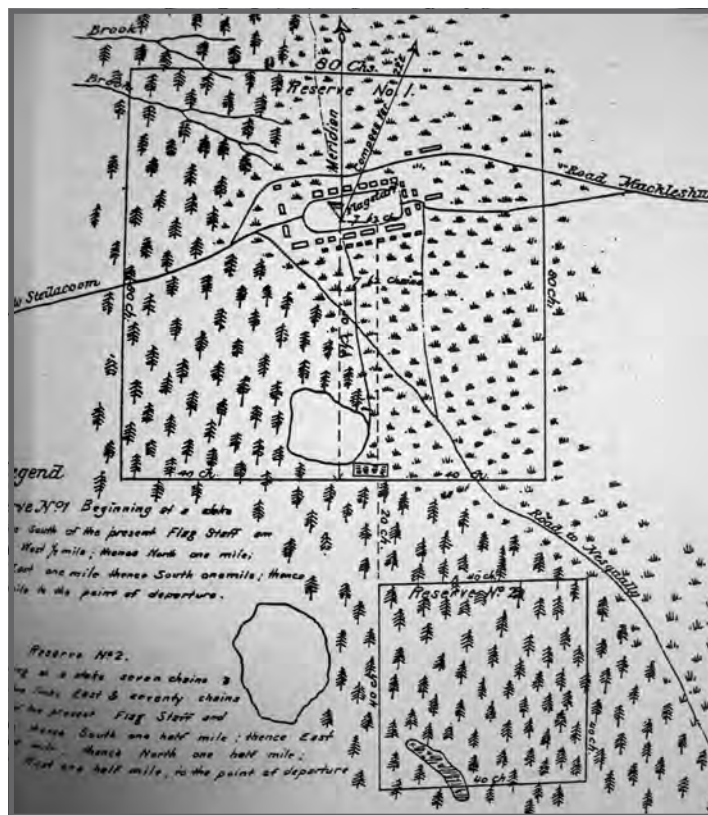 Brook
Brook
80 Chs.
Reserve No 1.
Meridian
Compass Var. 22E
Road
Flagstaff
7 ½ ch
Steilacoom
7 ½ chains
80 Ch.
80 Ch.
40 Ch.
40 Ch.
20 Ch.
Road to Nesqually
egend
ve Nº1 Beginning at a stake
South of the present Flag Staff on
West ½ mile; thence North one mile;
East one mile thence South one mile; thence
mile to the point of departure.
40 Ch
Reserve Nº 2
40 Ch
40 Ch
40 Ch.
Reserve Nº2.
at a stake seven chains &
links East & seventy chains
of the present Flag Staff and
thence South one half mile; thence East
mile thence North one half mile;
West one half mile, to the point of departure